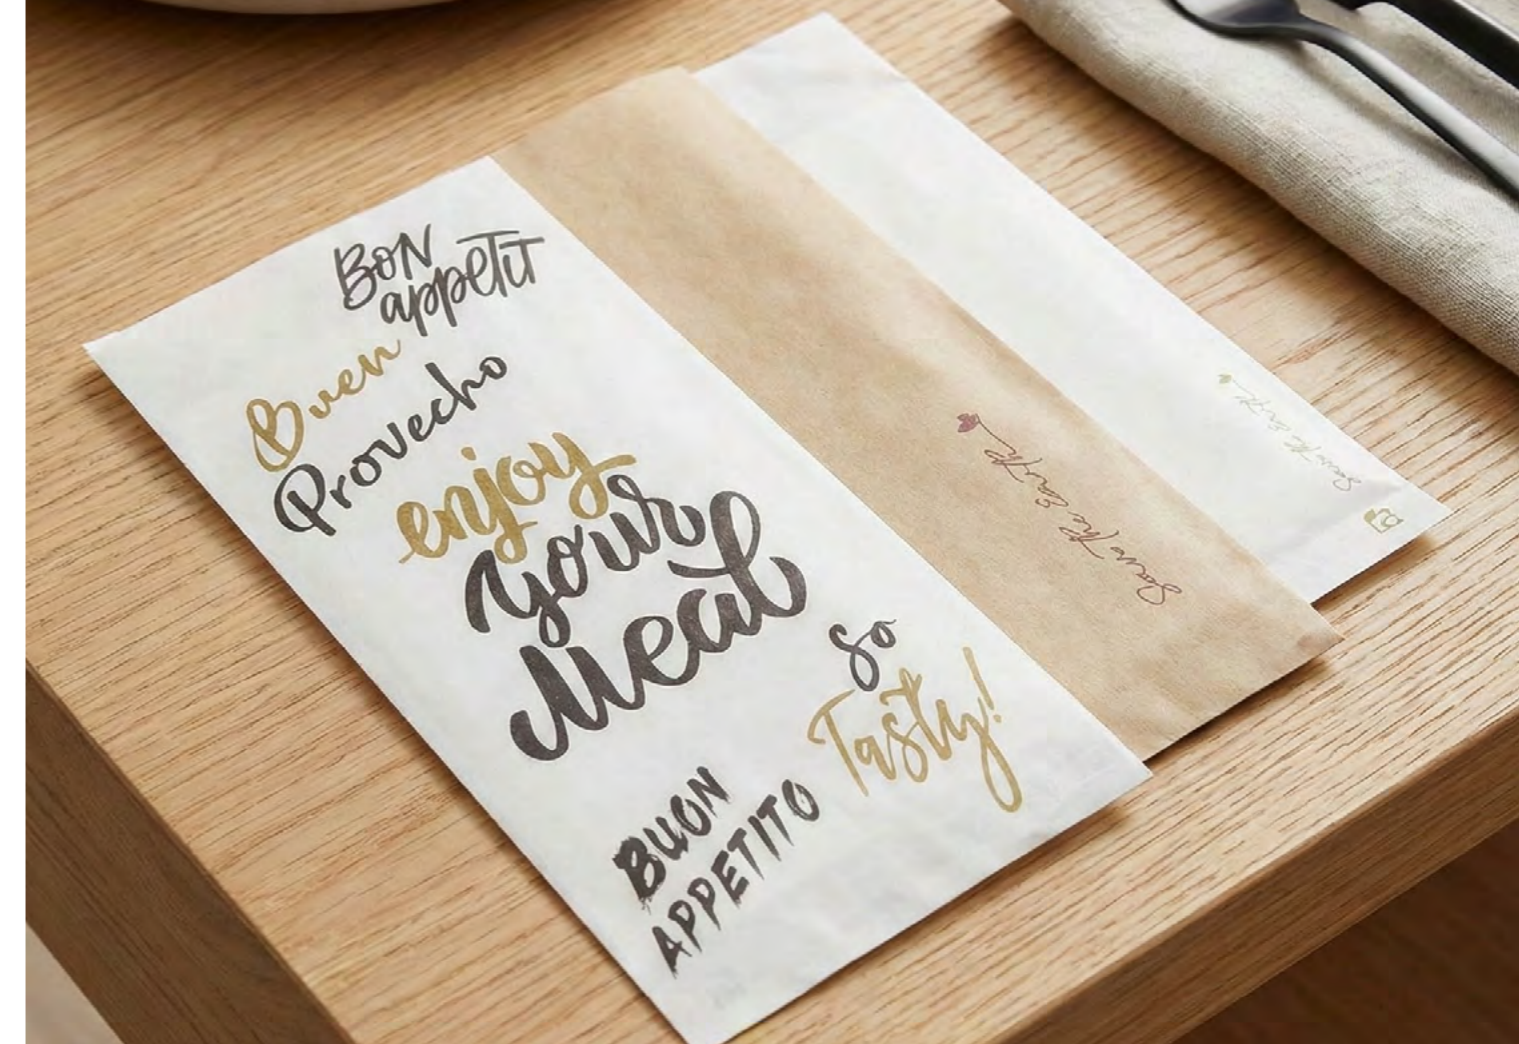 BON
appetit
Buen
Provecho
enjoy
your
Meal
so
Tasty!
BUON
APPETITO
Save The Earth
Save The Earth